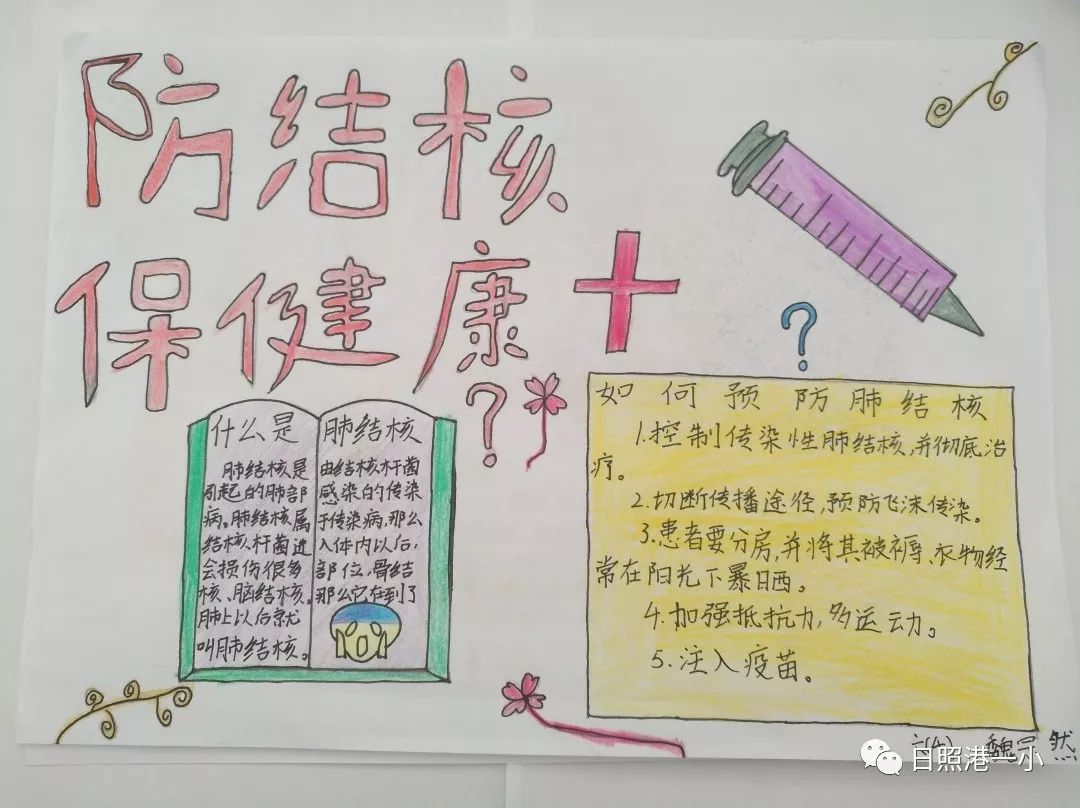 防结核
保健康
?
?
什么是肺结核
肺结核是由结核杆菌
引起的肺部感染的传染
病。肺结核属于传染病,那么
结核杆菌进入体内以后,
会损伤很多部位,骨结
核、脑结核。那么它在到了
肺上以后就
叫肺结核。
如何预防肺结核
1.控制传染性肺结核,并彻底治
疗。
2.切断传播途径,预防飞沫传染。
3.患者要分房,并将其被褥、衣物经
常在阳光下暴晒。
4.加强抵抗力,多运动。
5.注入疫苗。
六(4) 魏 然
日照港一小